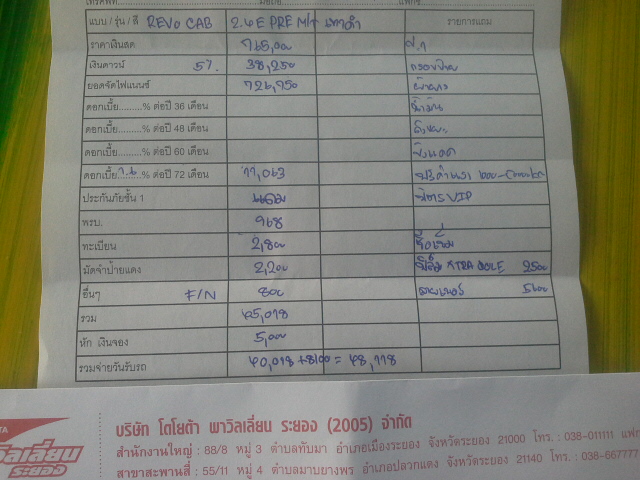 แบบ / รุ่น / สี REVO CAB 2.4E PRE M/T เทาดำ รายการแถม
ราคาเงินสด 765,000 ป.1
เงินดาวน์ 5% 38,250 กรอบป้าย
ยอดจัดไฟแนนซ์ 726,750 ผ้ายาง
ดอกเบี้ย.........% ต่อปี 36 เดือน น้ำมัน
ดอกเบี้ย.........% ต่อปี 48 เดือน
ดอกเบี้ย.........% ต่อปี 60 เดือน
ดอกเบี้ย.........% ต่อปี 72 เดือน 11,063
ประกันภัยชั้น 1 แถม บัตร VIP
พรบ. 968
ทะเบียน 2,800
มัดจำป้ายแดง 2,200 2500
อื่นๆ F/N 800 5600
รวม 45,018
หัก เงินจอง 5,000
รวมจ่ายวันรับรถ 40,018+8100 = 48,118
บริษัท โตโยต้า พาวิลเลี่ยน ระยอง (2005) จำกัด
สำนักงานใหญ่ : 88/8 หมู่ 3 ตำบลทับมา อำเภอเมืองระยอง จังหวัดระยอง 21000 โทร. : 038-011111 แฟก
สาขาสะพานสี่ : 55/11 หมู่ 4 ตำบลมาบยางพร อำเภอปลวกแดง จังหวัดระยอง 21140 โทร. : 038-667777
ระยอง